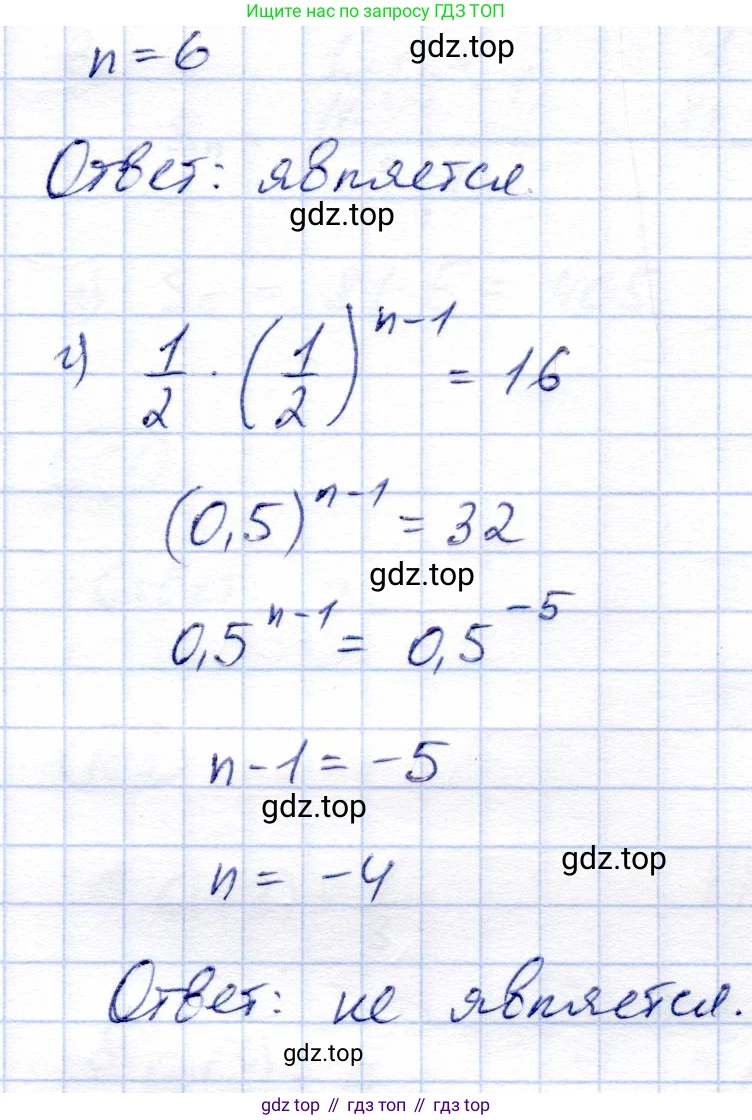 Ищите нас по запросу ГДЗ ТОП
n = 6
gdz.top
Ответ: является.
gdz.top
г) 1/2 · (1/2)^(n-1) = 16
(0,5)^(n-1) = 32
gdz.top
0,5^(n-1) = 0,5^(-5)
n - 1 = -5
gdz.top
gdz.top
n = -4
Ответ: не является.
gdz.top
gdz top // гдз топ // gdz top